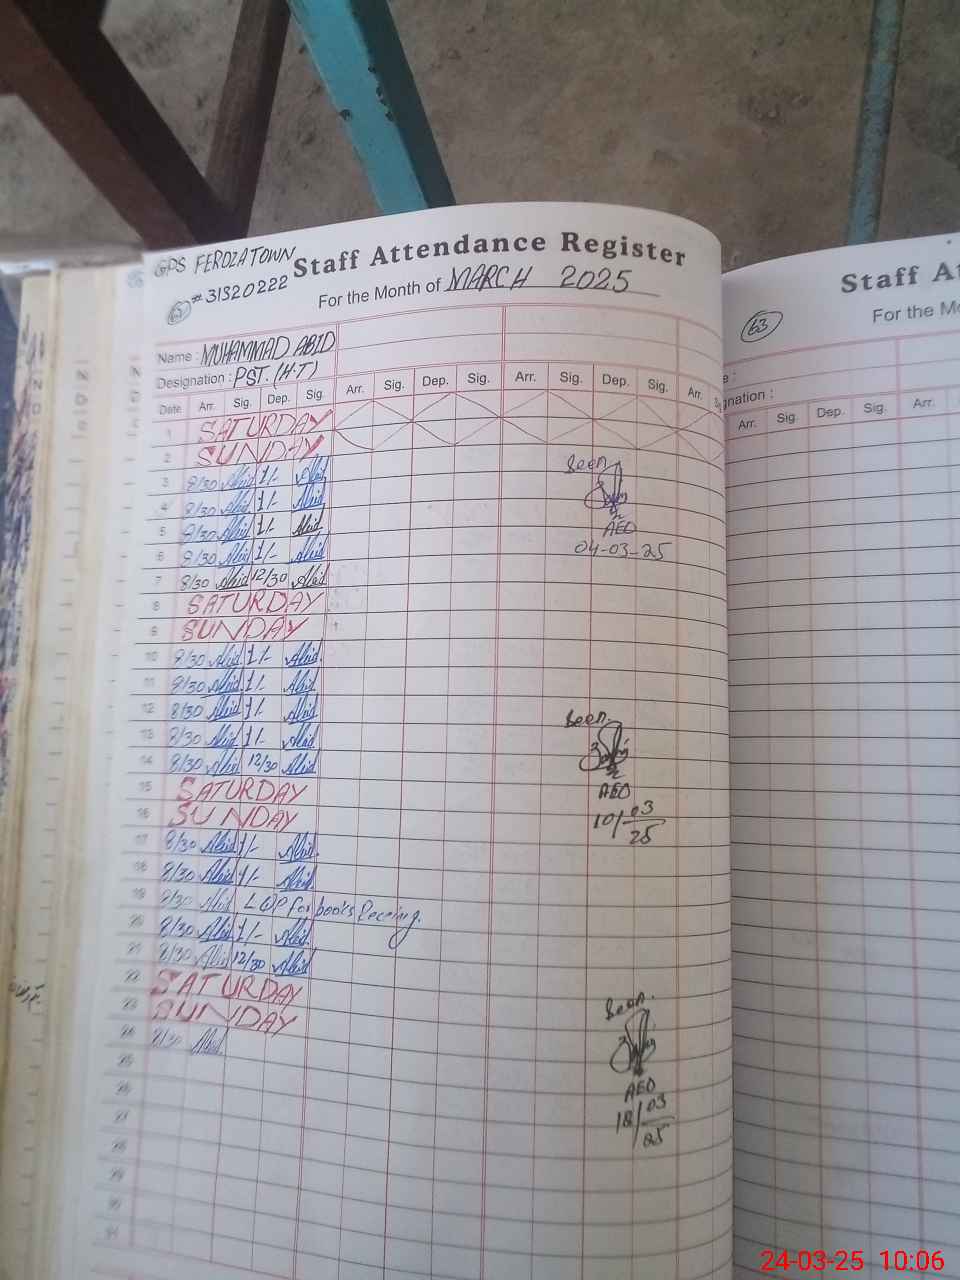 GPS FEROZATOWN
# 31320222
Staff Attendance Register
For the Month of MARCH 2025
Name : MUHAMMAD ABID
Designation : PST. (H.T)
Date Arr. Sig. Dep. Sig. Arr. Sig. Dep. Sig. Arr. Sig. Dep. Sig. Arr.
1 SATURDAY
2 SUNDAY
3 8/30 Abid 1/- Abid
4 8/30 Abid 1/- Abid
5 8/30 Abid 1/- Abid
6 8/30 Abid 1/- Abid
7 8/30 Abid 12/30 Abid
8 SATURDAY
9 SUNDAY
10 8/30 Abid 1/- Abid
11 8/30 Abid 1/- Abid
12 8/30 Abid 1/- Abid
13 8/30 Abid 1/- Abid
14 8/30 Abid 12/30 Abid
15 SATURDAY
16 SUNDAY
17 8/30 Abid 1/- Abid
18 8/30 Abid 1/- Abid
19 8/30 Abid for books Receing.
20 8/30 Abid 1/- Abid
21 8/30 Abid 12/30 Abid
22 SATURDAY
23 SUNDAY
24 8/30 Abid
25
26
27
28
29
30
31
Seen.
AEO
04-03-25
Seen.
AEO
10/03/25
Seen.
AEO
18/03/25
63
Staff At
For the Mo
e :
gnation :
Arr. Sig. Dep. Sig. Arr.
24-03-25 10:06